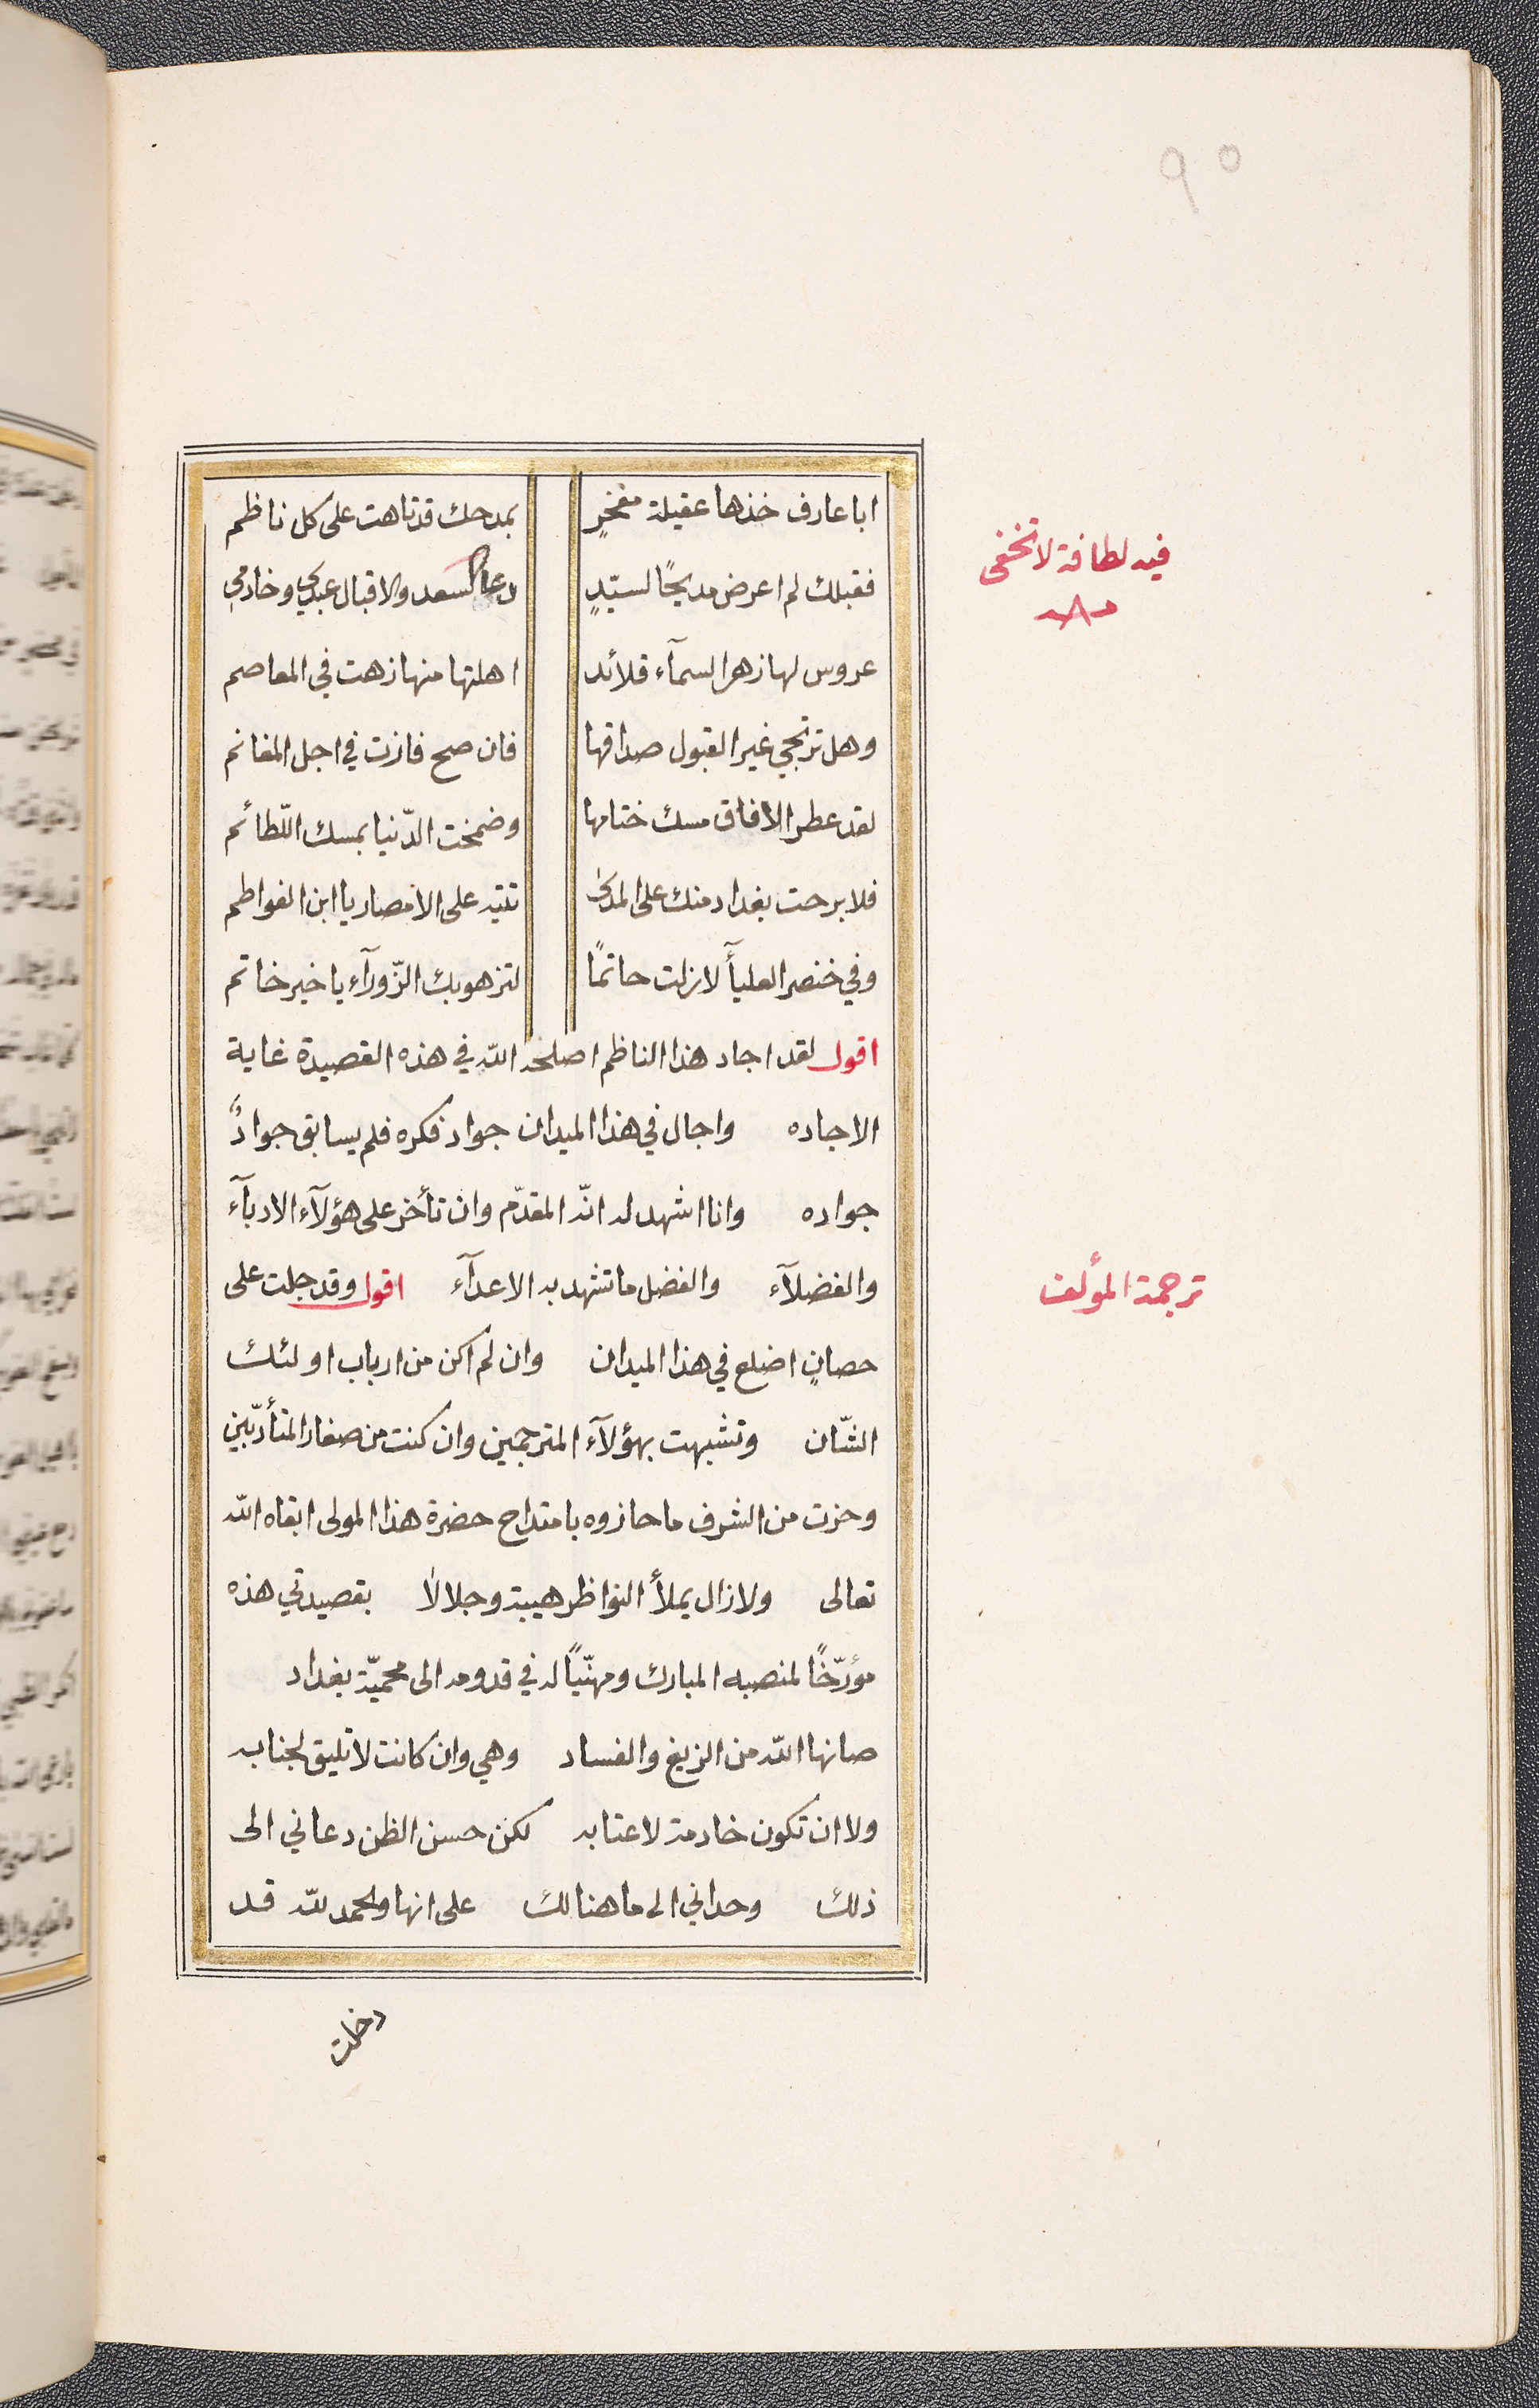 ٩٥
ابا عارف خذها عقيلة مفخرٍ بمدحك قد تاهت على كل ناظم
فيه لطافة لا تخفى
فقبلك لم اعرض مديحًا لسيّدٍ والاقبال عبدي وخادمي
عروس لها زهر السمآء قلائد اهلتها منها زهت في المعاصم
وهل ترتجي غير القبول صداقها فان صح فازت في اجل المغانم
لقد عطر الافاق مسك ختامها وضمخت الدّنيا بمسك اللّطائم
فلا برحت بغداد منك على المدى تتيه على الامصار يا ابن الفواطم
وفي خنصر العليآ لا زلت حاتمًا لتزهو بك الزّورآء يا خير خاتم
اقول لقد اجاد هذا الناظم اصلحه الله في هذه القصيدة غاية
الاجاده واجال في هذا الميدان جواد فكره فلم يسابق جوادٌ
جواده وانا اشهد له انّه المقدّم وان تأخر على هؤلآء الادبآء
والفضلآء والفضل ما تشهد به الاعدآء اقول وقد جلت على
ترجمة المؤلف
حصانٍ اضلع في هذا الميدان وان لم اكن من ارباب اولئك
الشّان وتشبهت بهؤلآء المترجمين وان كنت من صغار المتأدّبين
وحزت من الشرف ما حازوه بامتداح حضرة هذا المولى ابقاه الله
تعالى ولا زال يملأ النواظر هيبة وجلالا بقصيدتي هذه
مؤرّخًا لمنصبه المبارك ومهنّيًا له في قدومه الى محميّة بغداد
صانها الله من الزيغ والفساد وهي وان كانت لا تليق لجنابه
ولا ان تكون خادمة لاعتابه لكن حسن الظن دعاني الى
ذلك وحداني الى ما هنالك على انها والحمد لله قد
دخلت